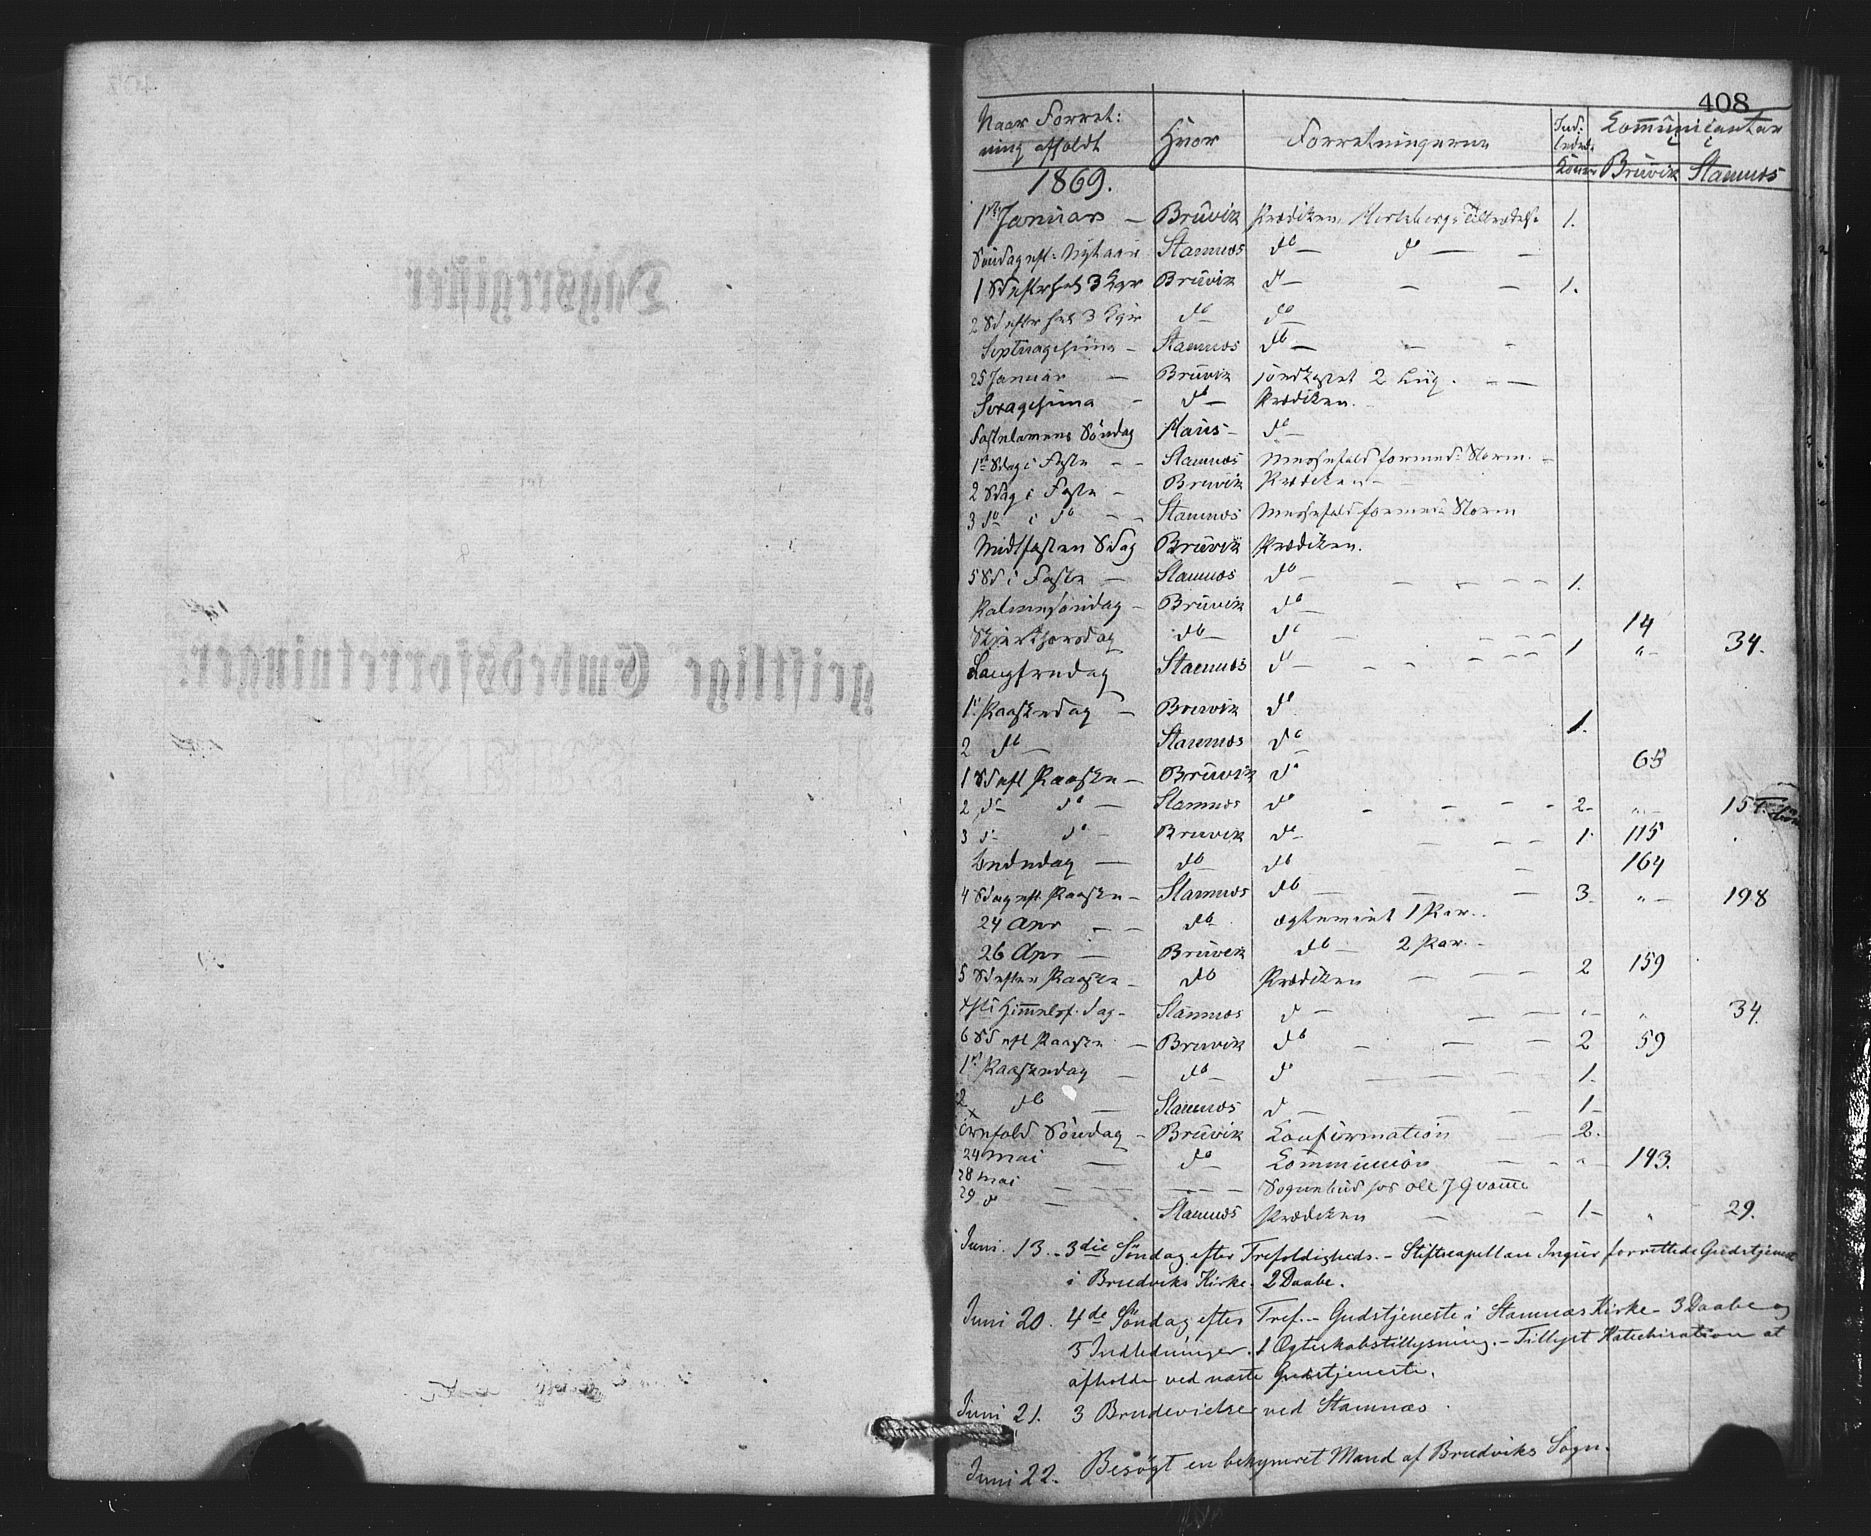 408
Naar Forret: Hvor Forretningerne Ind: Communicanter
ning afholdt ledn. i i
Koner Bruvik Stamnæs
1869.
1ste Januar — Bruvik Prædiken, 1.
Søndag eft. Nytaar Stamnæs do — do —
1 Sd efter hel 3 Kgr Bruvik do — — — 1.
2 Sd efter hel 3 Kgr do do
Septuagesima — Stamnæs do — — -
25 Januar — Bruvik 2 — —
Sexagesima - do — Prædiken.
Fastelavens Søndag Haus — do —
1ste Sdag i Faste - - Stamnæs Messefald formed: Storm. -
2 Sdag i Faste — Bruvik Prædiken —
3 do i do - - Stamnæs Messefald formed: Storm
Midtfasten Sdag Bruvik Prædiken.
5 Sd i Faste — Stamnæs do — — — — — 1.
Palmesøndag - Bruvik do
Skjærthorsdag do — do — — — — 14
Langfredag Stamnæs do — - - - — — 1 " - 34.
1ste Paaskedag — Bruvik do
2 do — Stamnæs do 1.
1 Sd eft Paaske — Bruvik do 65
2 do do — Stamnæs do - - - - - 2 - " - 154.
3 do do - Bruvik do — — — 1. 115
Bededag — do do 164
4 Sdag eft. Paaske - Stamnæs do — — — 3. " - 198
24 Apr — — do Ægteviet 1 Par.
26 Apr — Bruvik do — 2 Par. -
5 Sd efter Paaske - do Prædiken — — — 2 159
Christi Himmelsf. dag - Stamnæs do — — — " " 34.
6 Sd eft Paaske — Bruvik do — - — — 2 59
1ste Paaskedag — do — do — — — 1.
2 do — Stamnæs do — — — 1 -
Trefold Søndag - Bruvik Confirmation — — 2.
24 Mai — do Communion — — " - 143.
28 Mai — — — — Sognebud hos Ole J Qvamme
29 do — Stamnæs Prædiken — — 1 - " 29.
Juni. 13. - 3die Søndag efter Trefoldigheds. - Stiftscapellan Ingier forrettede Gudstjeneste
i Brudviks Kirke. 2 Daabe.
Juni 20. 4de Søndag efter Tref. - Gudstjeneste i Stamnæs Kirke - 3 Daabe og
3 Indledninger. 1 Ægteskabstillysning. - Tillyst Katechisation at
afholde ved næste Gudstjeneste.
Juni 21. 3 Brudevielser ved Stamnæs.
Juni 22. Besøgt en bekymret Mand af Brudviks Sogn.
Dagsregister
geistlige Embedsforretninger.